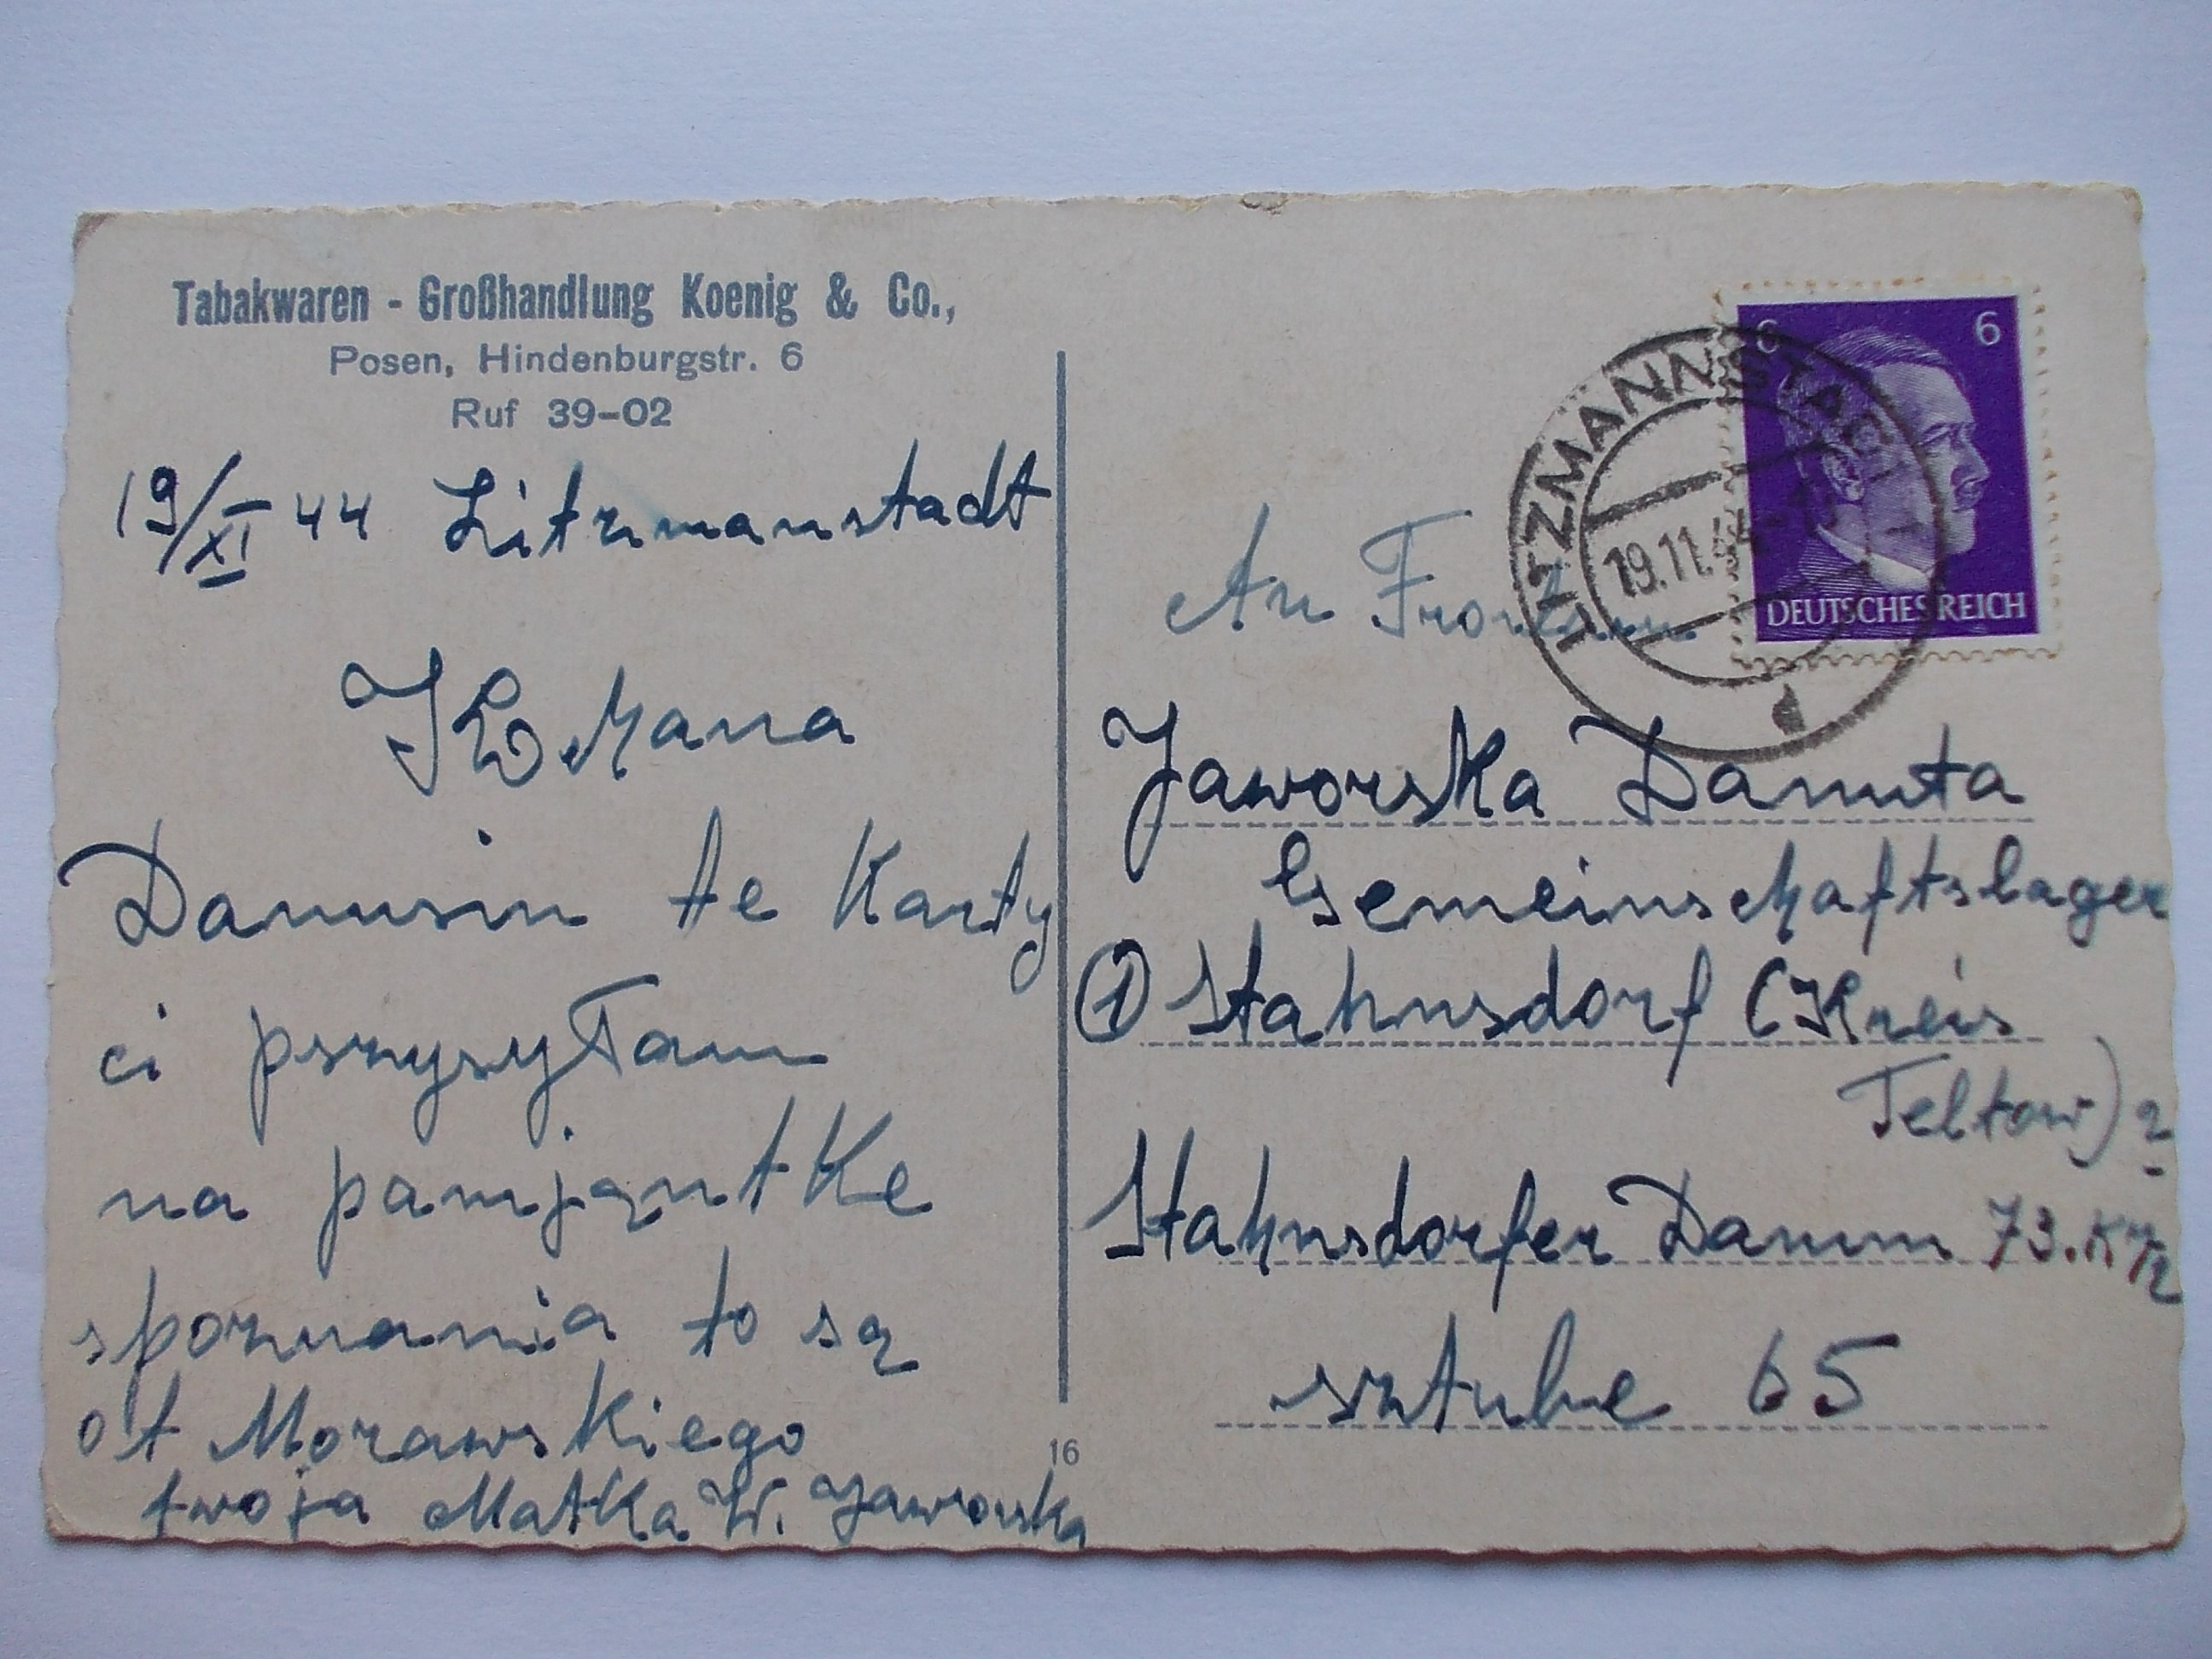 Tabakwaren - Großhandlung Koenig & Co.,
Posen, Hindenburgstr. 6
Ruf 39-02
19/XI 44 Litzmanstadt
Kohana
Danusin te Karty
ci pszysyłam
na pamjąntke
spoznania to są
ot Morawskiego
twoja Matka W. Jaworska
16
6 6
DEUTSCHES REICH
LITZMANNSTADT
19.11.44
An
Jaworska Danuta
Gemeinschaftslager
① Stahnsdorf (Kreis
Teltow) 2
Stahnsdorfer Damm 73.
sztube 65